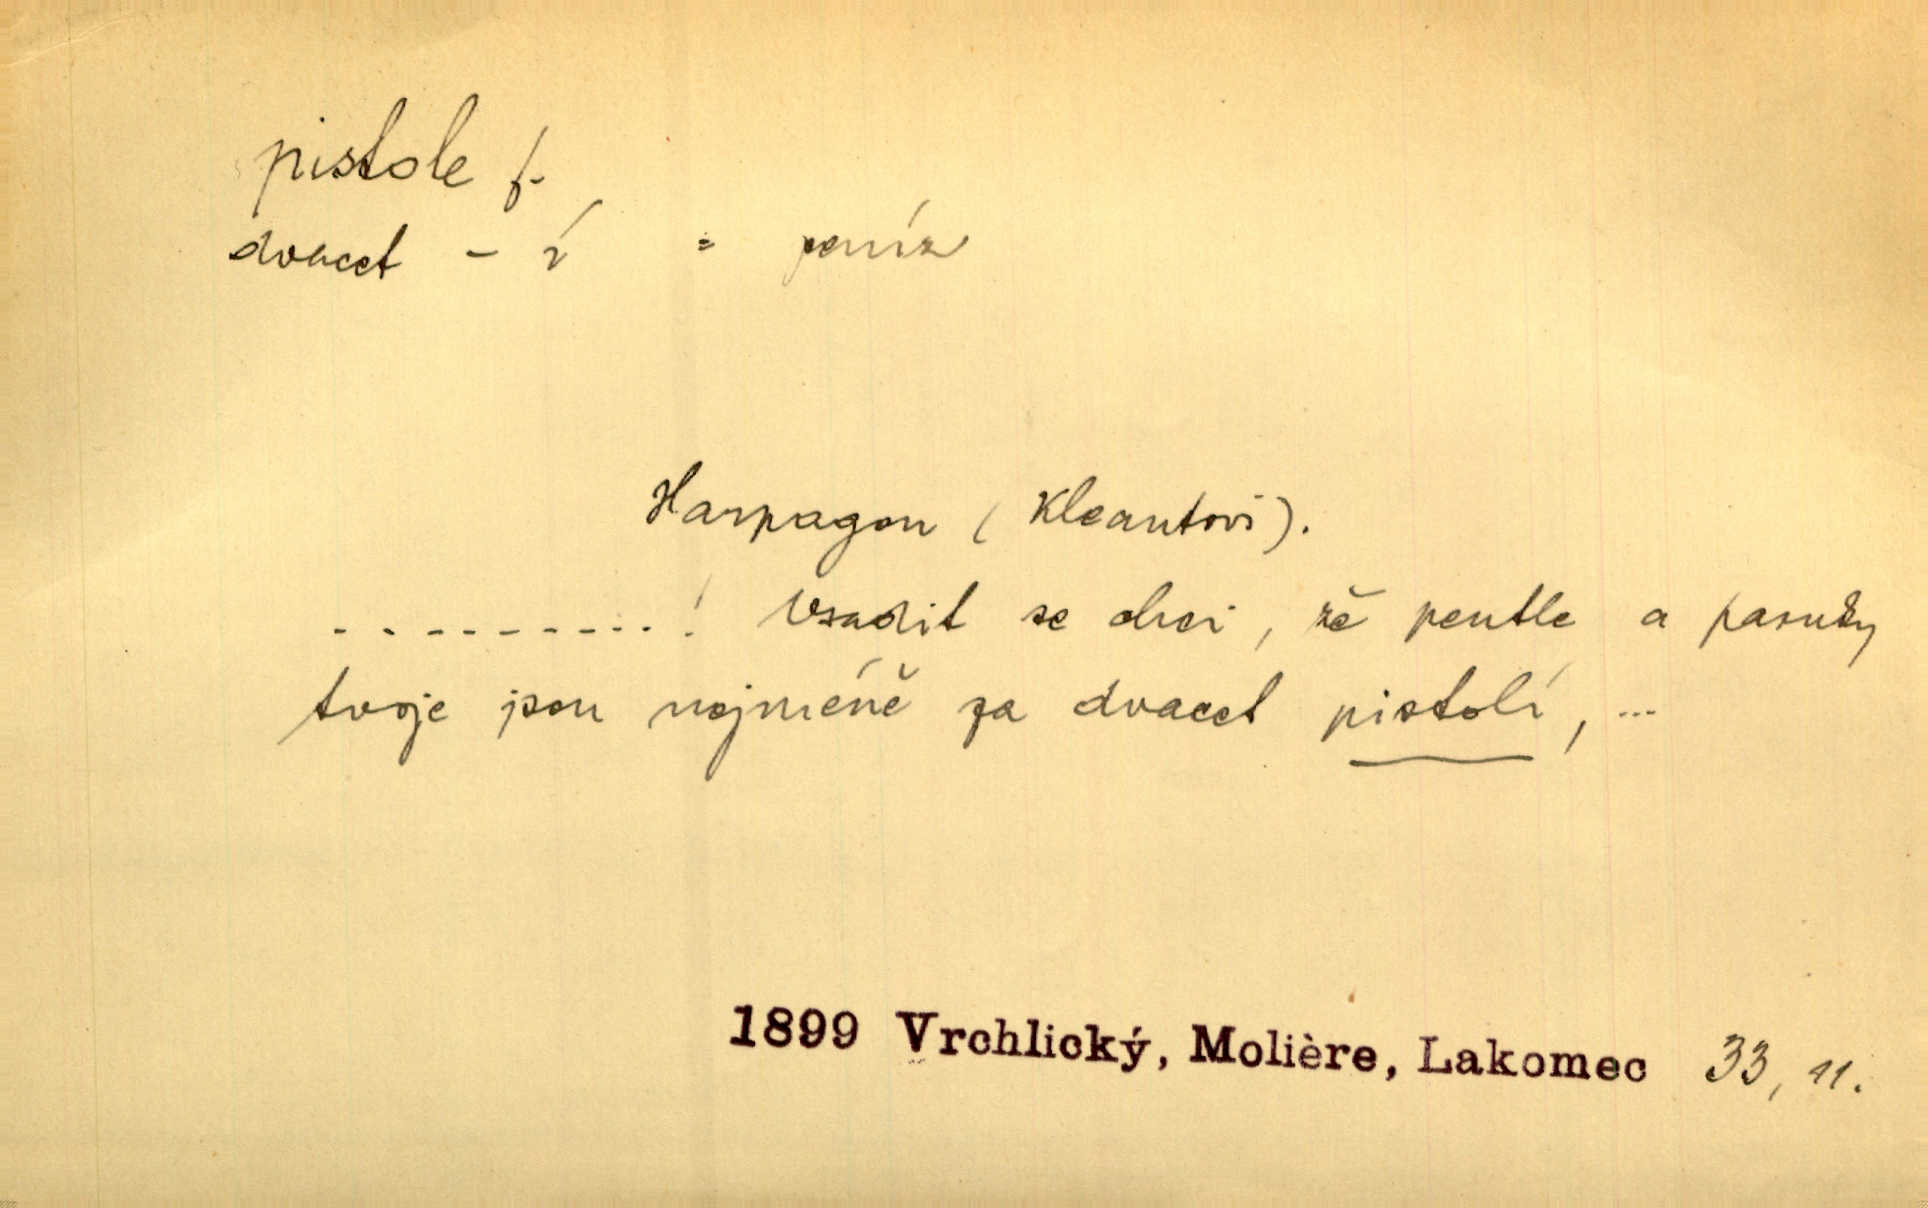 pistole f.
dvacet - í = peníz
Harpagon (Kleantovi).
. - - - - - - - - . ! Vsadit se chci, že pentle a paruky
tvoje jsou nejméně za dvacet pistolí, ...
1899 Vrchlický, Molière, Lakomec 33, 11.